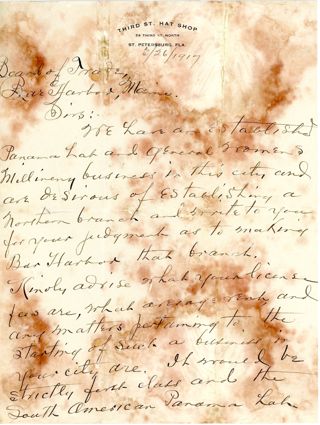 THIRD ST. HAT SHOP
26 THIRD ST. NORTH
ST. PETERSBURG, FLA.
2/26/1917
Board of Trade,
Bar Harbor, Maine.
Sirs:-
We have an established
Panama hat and general women's
Millinery business in this city and
are desirous of establishing a
Northern branch and write to you
for your judgment as to making
Bar Harbor that branch.
Kindly advise what your license
fees are, what average rents and
and matters pertaining to the
starting of such a business in
your city are. It would be
strictly first class and the
South American Panama hats